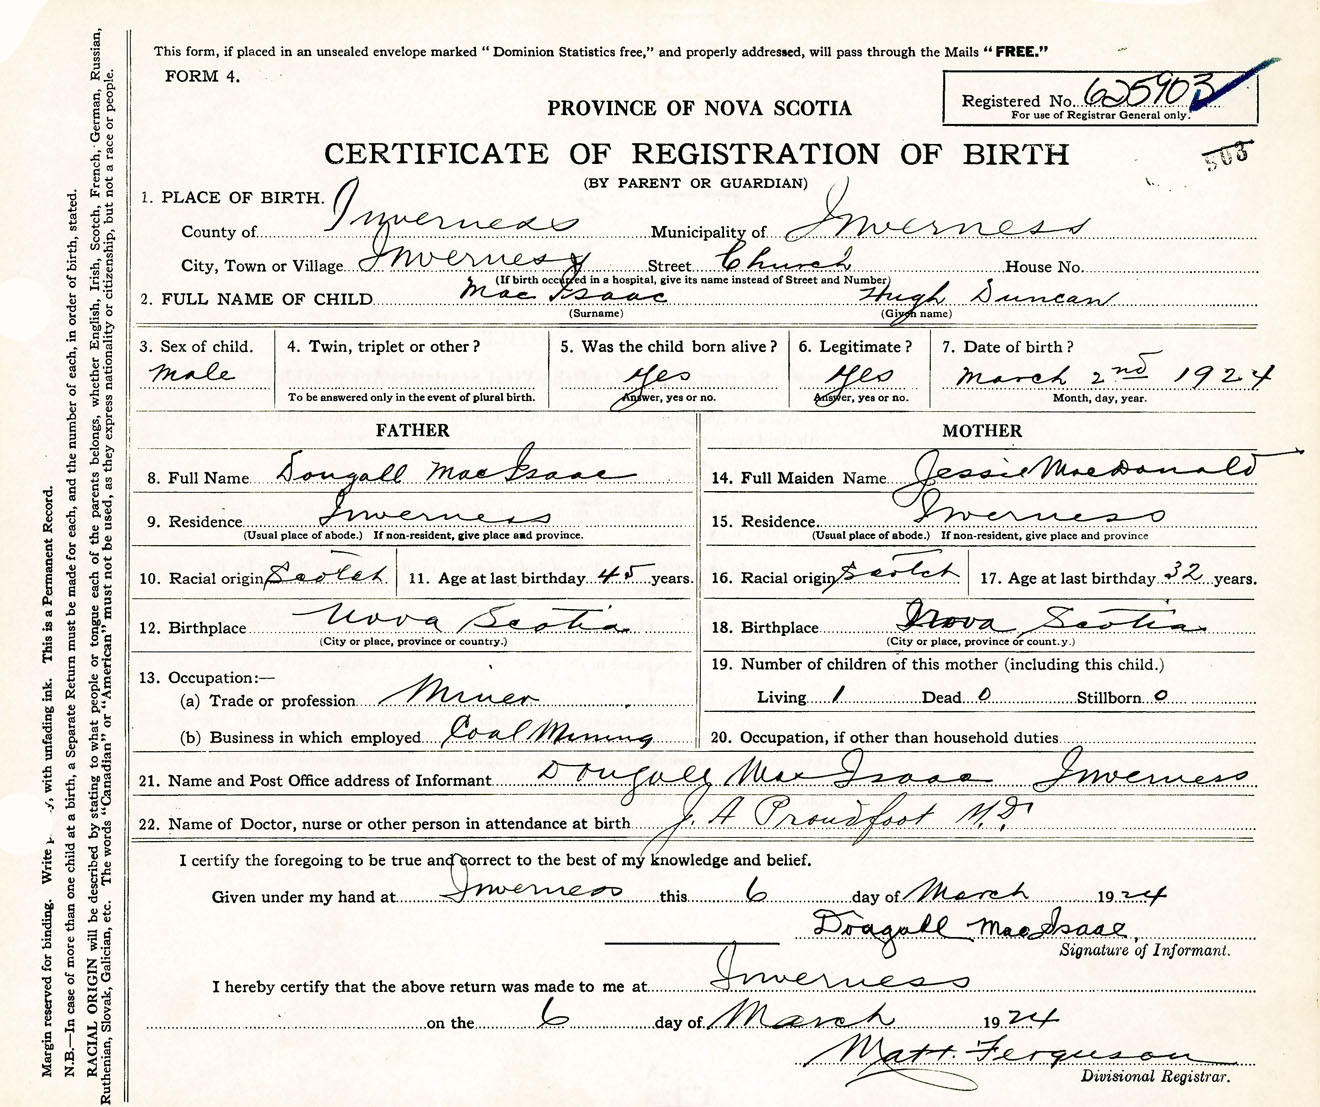 This form, if placed in an unsealed envelope marked "Dominion Statistics free," and properly addressed, will pass through the Mails "FREE."
FORM 4.
Registered No. 625903
For use of Registrar General only.
PROVINCE OF NOVA SCOTIA
503
CERTIFICATE OF REGISTRATION OF BIRTH
(BY PARENT OR GUARDIAN)
1. PLACE OF BIRTH.
County of Inverness Municipality of Inverness
City, Town or Village Inverness Street Church House No.
(If birth occurred in a hospital, give its name instead of Street and Number)
2. FULL NAME OF CHILD Mac Isaac Hugh Duncan
(Surname) (Given name)
3. Sex of child. 4. Twin, triplet or other? 5. Was the child born alive? 6. Legitimate? 7. Date of birth?
Male Yes Yes March 2nd 1924
To be answered only in the event of plural birth. Answer, yes or no. Answer, yes or no. Month, day, year.
FATHER
8. Full Name Dougall MacIsaac
9. Residence Inverness
(Usual place of abode.) If non-resident, give place and province.
10. Racial origin Scotch 11. Age at last birthday 45 years.
12. Birthplace Nova Scotia
(City or place, province or country.)
13. Occupation:—
(a) Trade or profession Miner
(b) Business in which employed Coal Mining
MOTHER
14. Full Maiden Name Jessie MacDonald
15. Residence. Inverness
(Usual place of abode.) If non-resident, give place and province
16. Racial origin Scotch 17. Age at last birthday 32 years.
18. Birthplace Nova Scotia
(City or place, province or count.y.)
19. Number of children of this mother (including this child.)
Living 1 Dead 0 Stillborn 0
20. Occupation, if other than household duties
21. Name and Post Office address of Informant Dougall MacIsaac Inverness
22. Name of Doctor, nurse or other person in attendance at birth J. A Proudfoot M.D.
I certify the foregoing to be true and correct to the best of my knowledge and belief.
Given under my hand at Inverness this 6 day of March 1924
Dougall MacIsaac,
Signature of Informant.
I hereby certify that the above return was made to me at Inverness
on the 6 day of March 1924
Matt. Ferguson
Divisional Registrar.
Margin reserved for binding. Write y, with unfading ink. This is a Permanent Record.
N.B.—In case of more than one child at a birth, a Separate Return must be made for each, and the number of each, in order of birth, stated.
RACIAL ORIGIN will be described by stating to what people or tongue each of the parents belongs, whether English, Irish, Scotch, French, German, Russian,
Ruthenian, Slovak, Galician, etc. The words "Canadian" or "American" must not be used, as they express nationality or citizenship, but not a race or people.